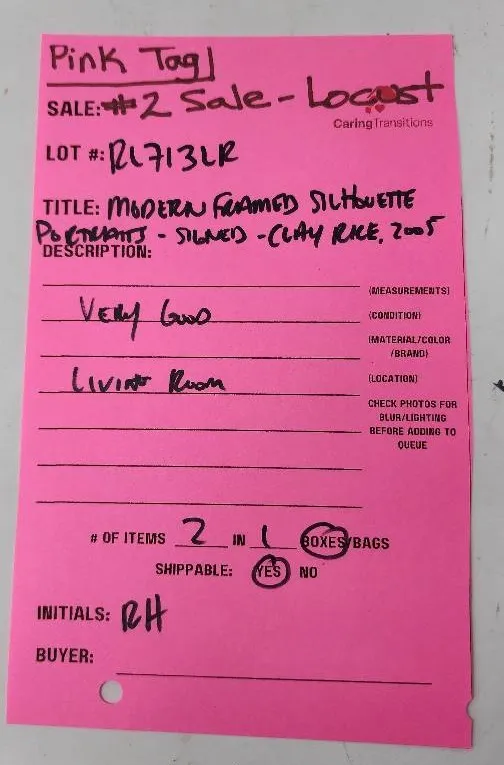 Pink Tag
SALE: #2 Sale - Locust
CaringTransitions
LOT #: RL713LR
TITLE: MODERN FRAMED SILHOUETTE
PORTRAITS - SIGNED - CLAY RICE, 2005
DESCRIPTION:
(MEASUREMENTS)
VERY GOOD (CONDITION)
(MATERIAL/COLOR
/BRAND)
LIVING ROOM (LOCATION)
CHECK PHOTOS FOR
BLUR/LIGHTING
BEFORE ADDING TO
QUEUE
# OF ITEMS 2 IN 1 BOXES/BAGS
SHIPPABLE: YES NO
INITIALS: RH
BUYER: